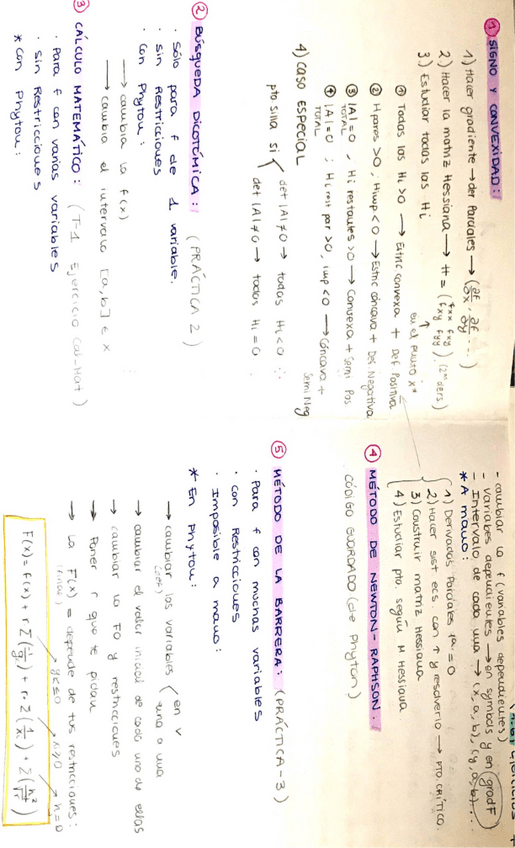 ① SIGNO Y CONVEXIDAD:
1) Hacer gradiente → der Parciales → (∂f/∂x, ∂f/∂y ...)
2) Hacer la matriz Hessiana → H = (fxx fxy fxy fyy). (2ªˢ ders)
en el punto x*
3) Estudiar todas las Hi
① Todas las Hi >0 → Estric convexa + Def Positiva
② H pares >0, H imp <0 → Estric cóncava + Def Negativa
③ |A|=0, Hi restantes >0 → Convexa + Semi Pos
TOTAL
④ |A|=0, Hi rest par >0, imp <0 → Cóncava +
TOTAL
Semi Neg
4) CASO ESPECIAL
pto silla si
det |A| ≠0 → todas Hi <0
det |A| ≠0 → todas Hi =0
② BÚSQUEDA DICOTÓMICA: (PRÁCTICA 2)
· Sólo para f de 1 variable.
· sin Restricciones
· Con Phyton:
→ cambia la f(x)
→ cambia el intervalo [a,b] ∈ x
③ CÁLCULO MATEMÁTICO: (T-1 Ejercicio Cal-Mat)
· Para f con varias variables
· Sin Restricciones
* Con Phyton:
- cambiar la f (variables dependientes)
- Variables dependientes → en symbols y en gradF
- Intervalo de cada una → (x,a,b), (y,a,b)...
* A mano:
1) Derivadas Parciales = 0
2) Hacer sist ecs con ↑ y resolverlo → PTO. CRÍTICO.
3) Construir matriz Hessiana
4) Estudiar pto. según M Hessiana
④ MÉTODO DE NEWTON-RAPHSON.
CÓDIGO GUARDADO (de Phyton)
⑤ MÉTODO DE LA BARRERA: (PRÁCTICA-3)
· Para f con muchas variables
· Con Restricciones
· Imposible a mano:
* En Phyton:
→ cambiar las variables
en v
una a una
→ cambiar el valor inicial de cada una de ellas
→ cambiar la FO y restricciones
→ Poner r que te pidan
→ La F(x) = depende de tus restricciones:
gi≤0
x≥0
h=0
F(x)= f(x) + r Σ(-1/g) + r·Σ(1/x) + Σ(h²/√r)